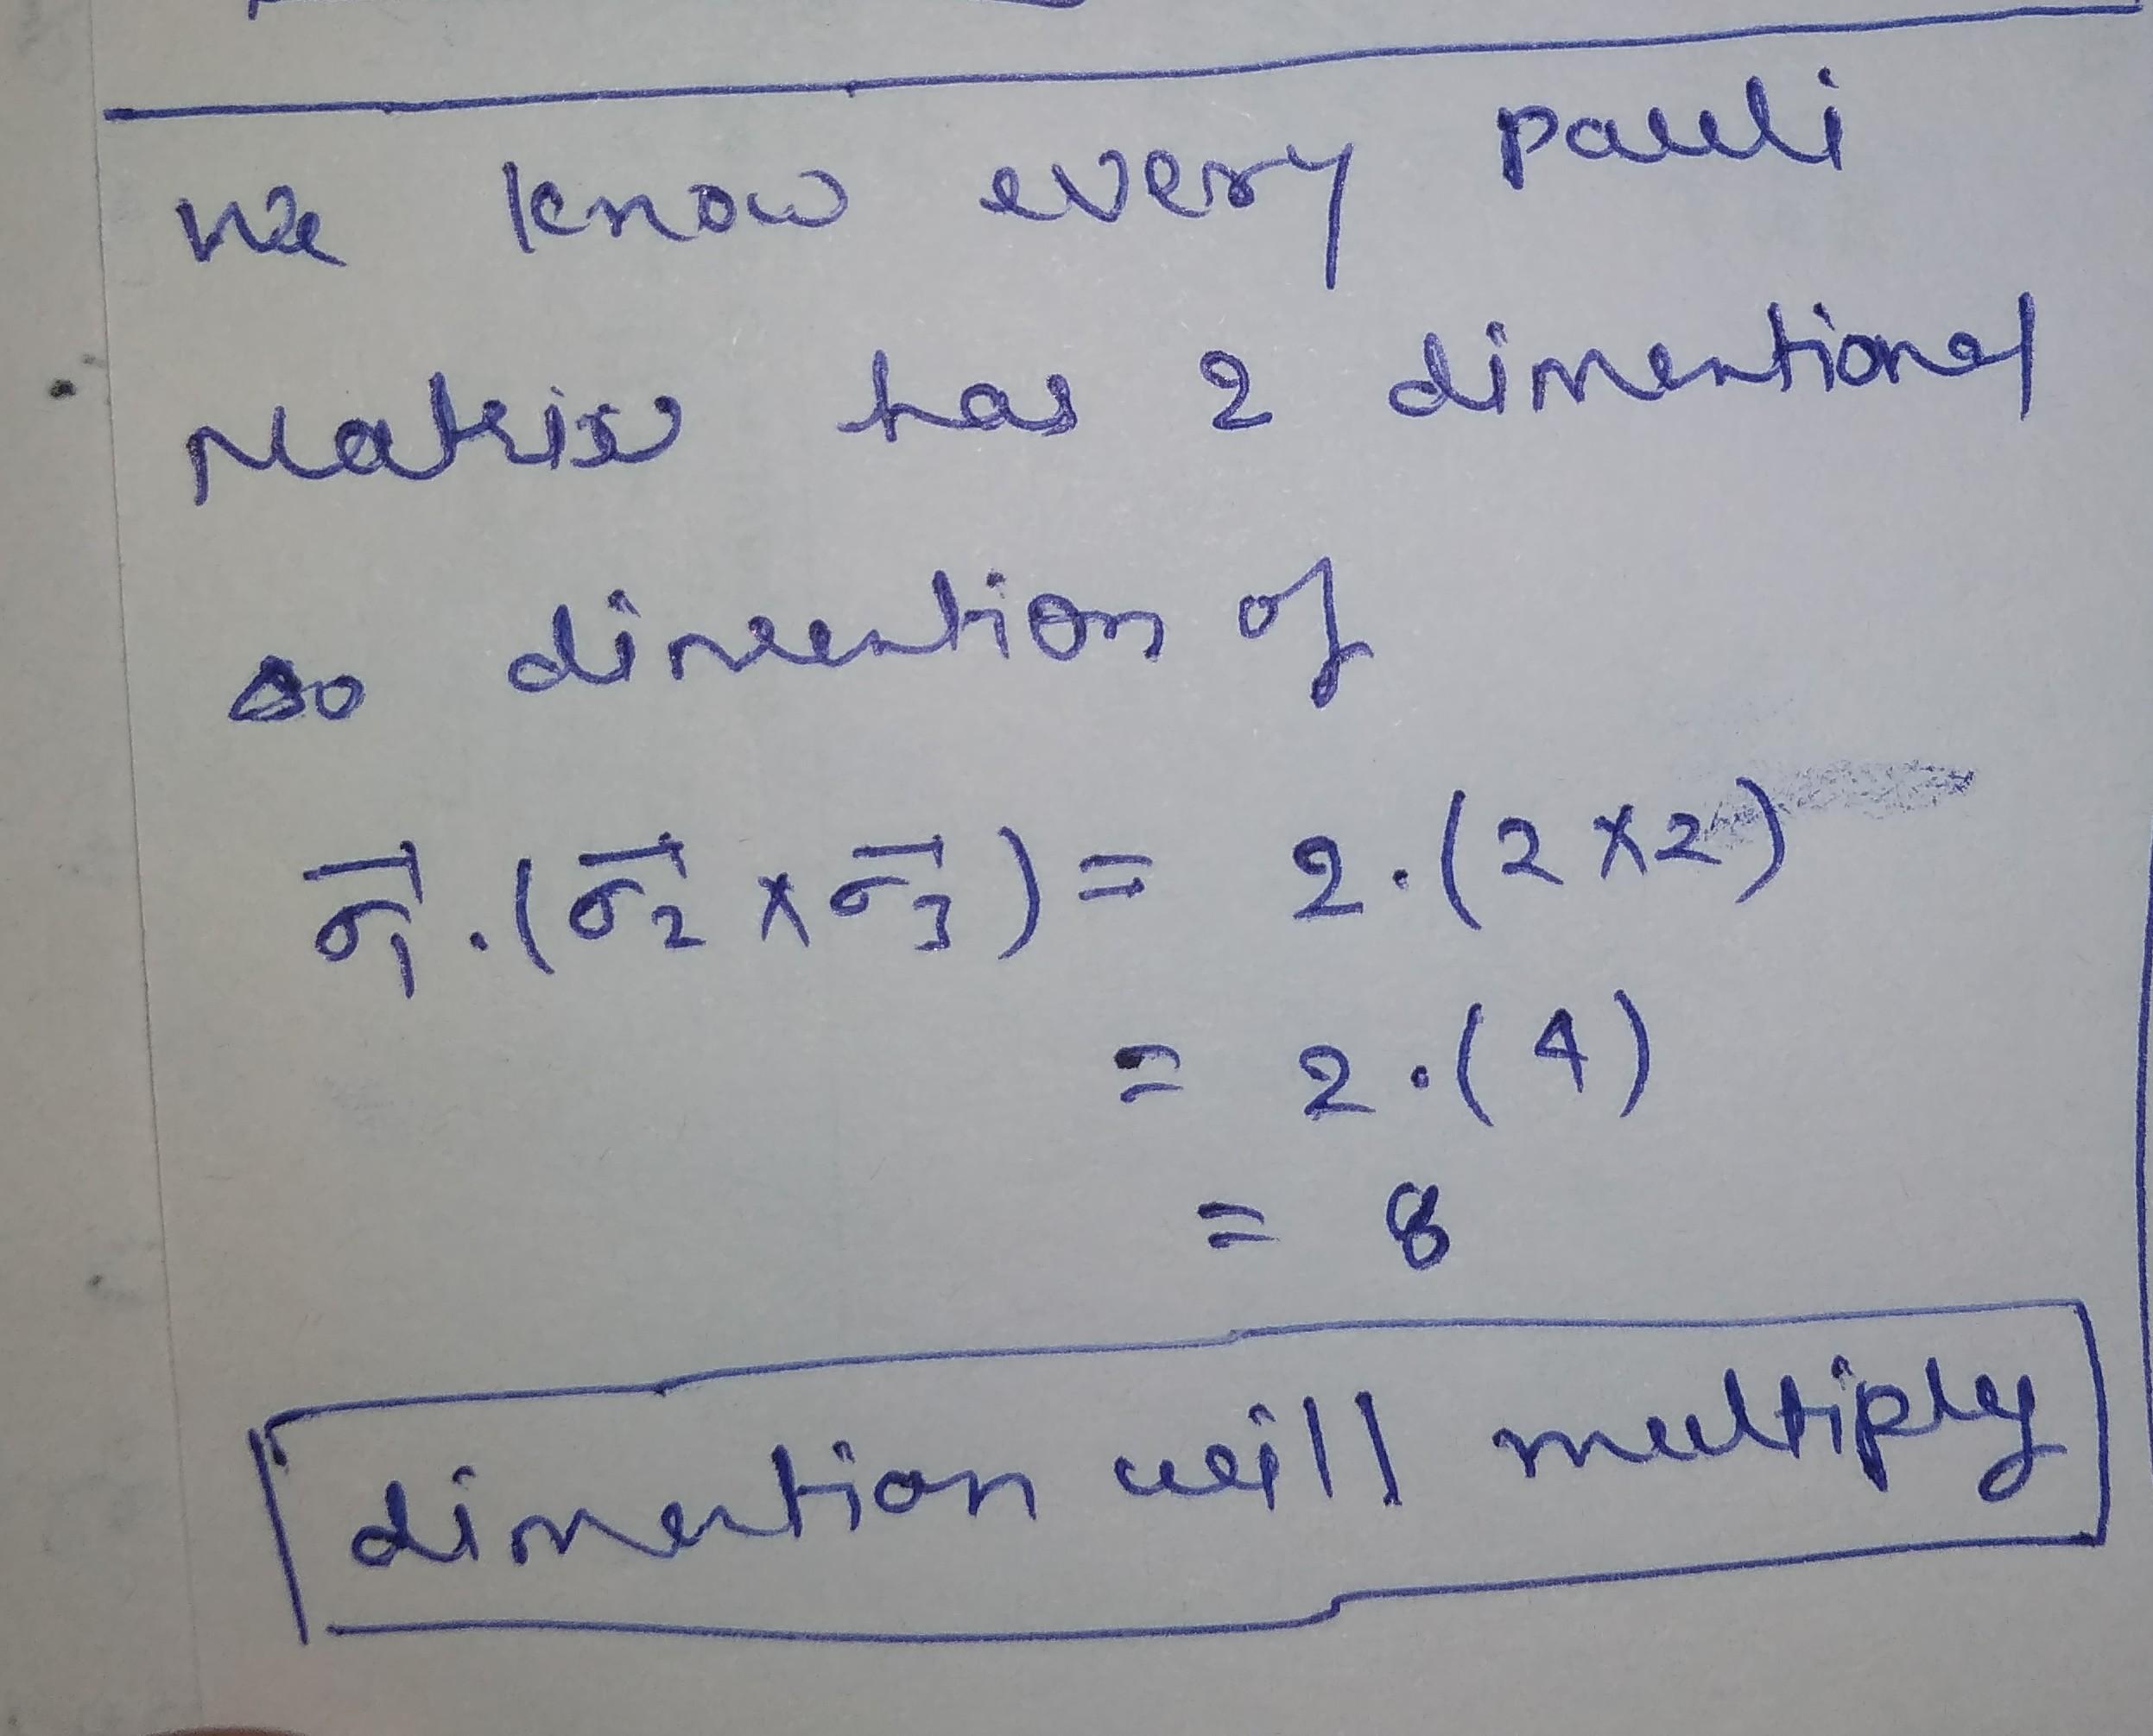 We know every pauli
Matrix has 2 dimentional
so dimention of
σ⃗₁.(σ⃗₂ × σ⃗₃) = 2.(2×2)
= 2.(4)
= 8
dimention will multiply